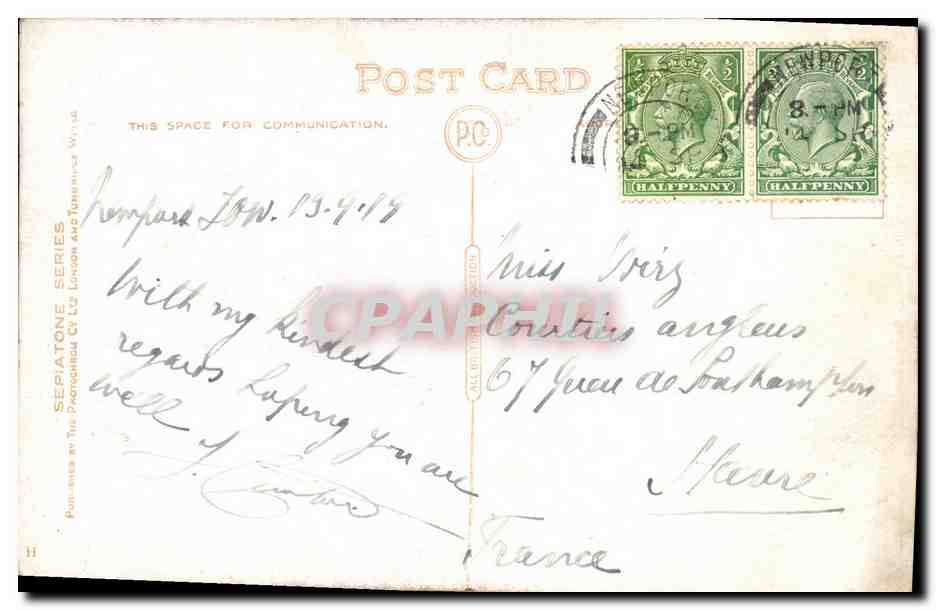 POST CARD
THIS SPACE FOR COMMUNICATION.
P.C.
½ ½
HALFPENNY
½ ½
HALFPENNY
NEWPORT
8 - PM
Newport I.O.W. 13.9.19
With my kindest
regards hoping you are
well
Miss
Courtiers anglais
67 Queu de Southampton
Havre
France
CPAPHIL
SEPIATONE SERIES
PUBLISHED BY THE PHOTOCHROM CO LTD LONDON AND TUNBRIDGE WELLS
H